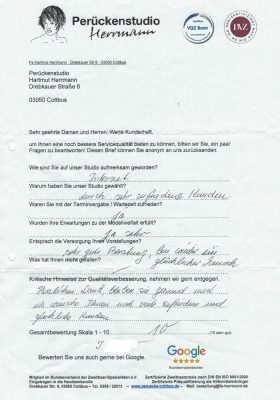 Perückenstudio
Herrmann
VQZ Bonn
Fa Hartmut Herrmann · Drebkauer Str. 6 · 03050 Cottbus
Perückenstudio
Hartmut Herrmann
Drebkauer Straße 6
03050 Cottbus
Sehr geehrte Damen und Herren, Werte Kundschaft,
um Ihnen eine noch bessere Servicequalität bieten zu können, bitten wir Sie, ein paar
Fragen zu beantworten! Diesen Brief können Sie anonym an uns zurücksenden.
Wie sind Sie auf unser Studio aufmerksam geworden?
Internet
Warum haben Sie unser Studio gewählt?
durch sehr zufriedene Kunden
Waren Sie mit der Terminvergabe / Wartezeit zufrieden?
ja
Wurden Ihre Erwartungen zu der Modellvielfalt erfüllt?
ja sehr
Entsprach die Versorgung Ihren Vorstellungen?
sehr gute Beratung, bin wieder ein
Was hat Ihnen nicht gefallen?
glücklicher Mensch
Kritische Hinweise zur Qualitätsverbesserung, nehmen wir gern entgegen.
Herzlichen Dank, bleiben Sie gesund und
ich wünsche Ihnen noch viele zufriedene und
glückliche Kunden
Gesamtbewertung Skala 1 - 10
10
(10 sehr gut)
Bewerten Sie uns auch gerne bei Google.
Google
Kundenrezensionen
Mitglied im Bundesverband der Zweithaar-Spezialisten e.V.
Eingetragen in die Handwerksrolle
Drebkauer Straße 6, 03050 Cottbus